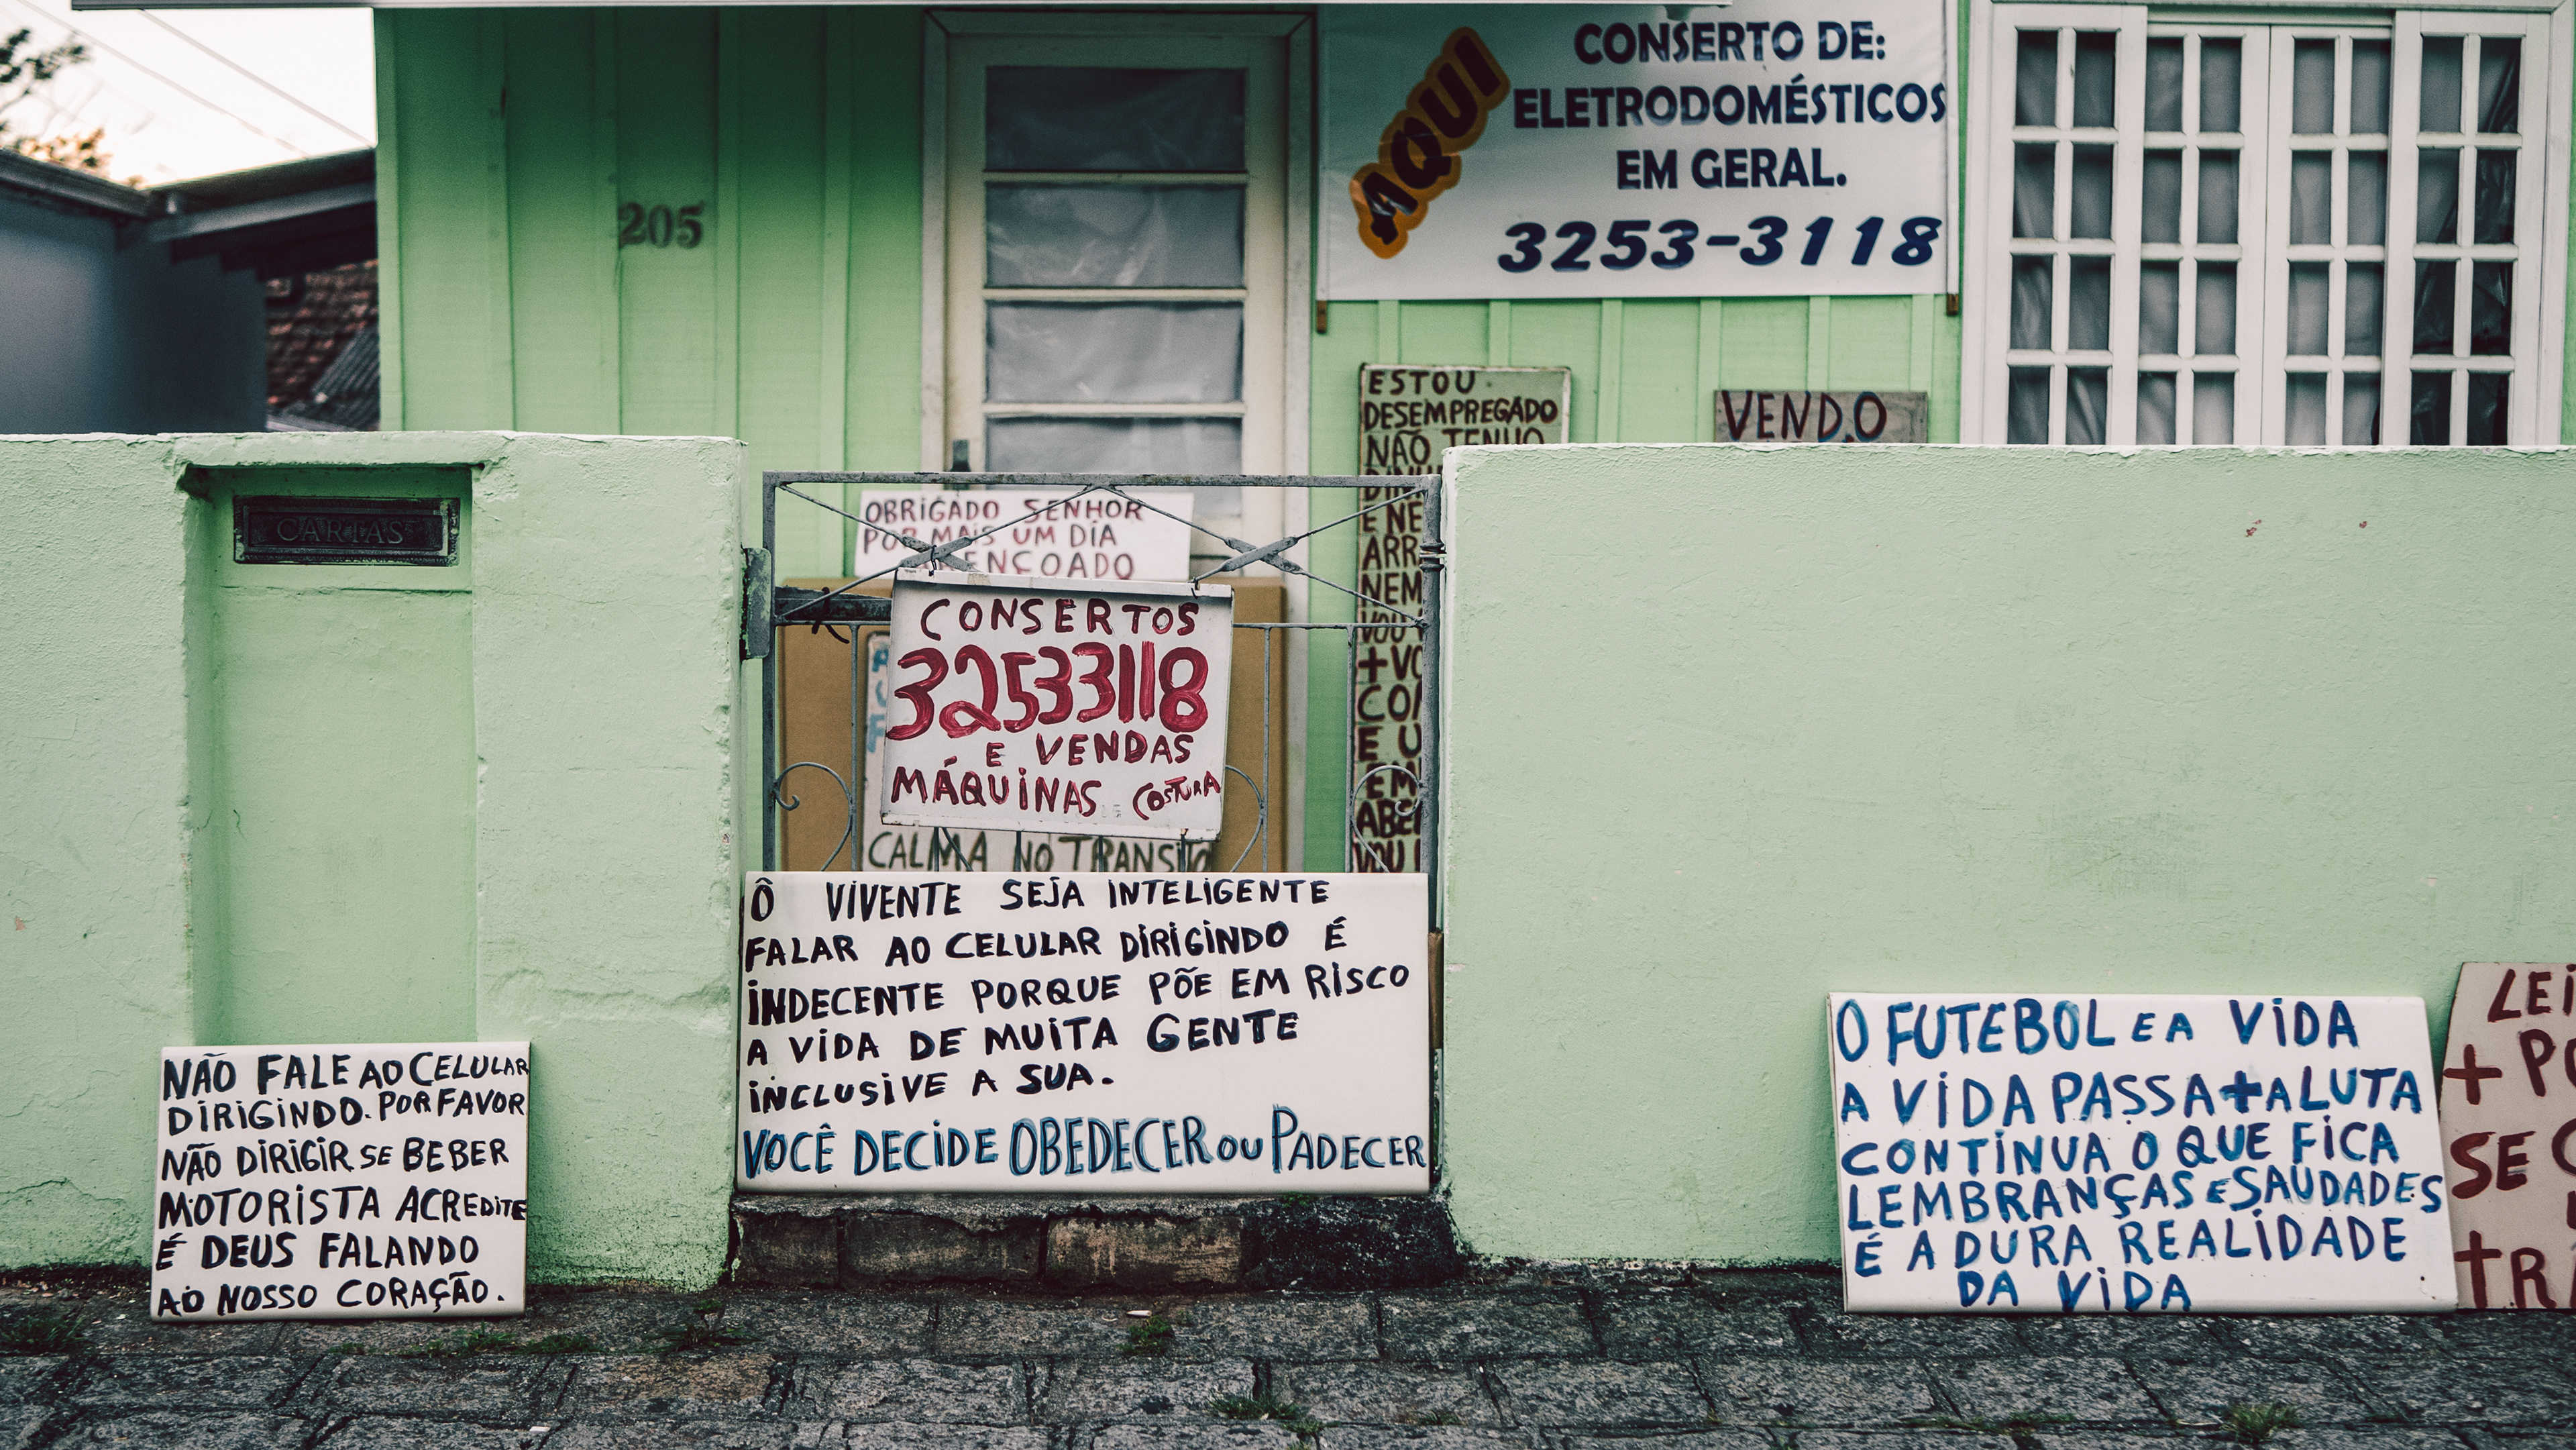 AQUI
CONSERTO DE:
ELETRODOMÉSTICOS
EM GERAL.
3253-3118
205
ESTOU
DESEMPREGADO
NÃO TENHO
E NE
ARR
NEM
VOU
+VO
CO
E U
EM
ABE
VOU
VENDO
CARTAS
OBRIGADO SENHOR
POR MAIS UM DIA
ENÇOADO
CONSERTOS
32533118
E VENDAS
MÁQUINAS COSTURA
CALMA NO TRANSITO
Ô VIVENTE SEJA INTELIGENTE
FALAR AO CELULAR DIRIGINDO É
INDECENTE PORQUE PÕE EM RISCO
A VIDA DE MUITA GENTE
INCLUSIVE A SUA.
VOCÊ DECIDE OBEDECER OU PADECER
NÃO FALE AO CELULAR
DIRIGINDO. POR FAVOR
NÃO DIRIGIR SE BEBER
MOTORISTA ACREDITE
É DEUS FALANDO
AO NOSSO CORAÇÃO.
O FUTEBOL E A VIDA
A VIDA PASSA + A LUTA
CONTINUA O QUE FICA
LEMBRANÇAS E SAUDADES
É A DURA REALIDADE
DA VIDA
LEI
+ PO
SE
+ R